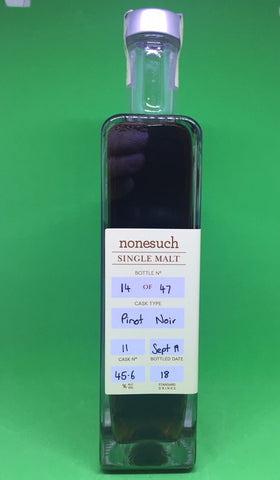 nonesuch
SINGLE MALT
BOTTLE Nº
14 OF 47
CASK TYPE
Pinot Noir
11 Sept 19
CASK Nº BOTTLED DATE
45.6 18
% ALC VOL STANDARD DRINKS